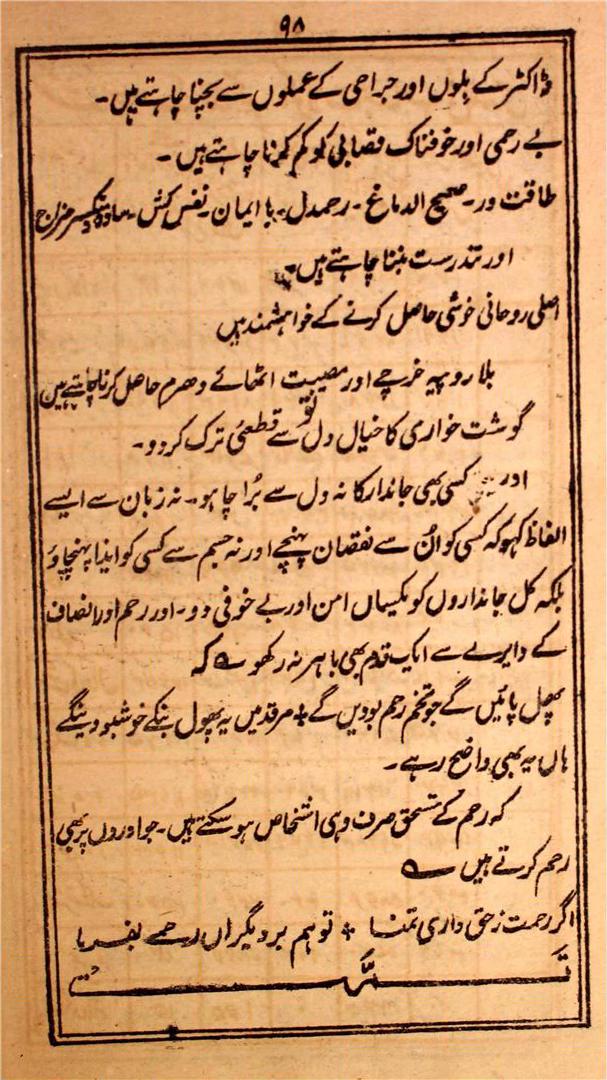 ۹۸
ڈاکٹر کے بلوں اور جراحی کے عملوں سے بچنا چاہتے ہیں۔
بے رحمی اور خوفناک قصابی کو کم کرنا چاہتے ہیں۔
طاقت ور۔ صحیح الدماغ۔ رحمدل۔ با ایمان۔ نفس کش۔ مزاج
اور تندرست بننا چاہتے ہیں۔
اصلی روحانی خوشی حاصل کرنے کے خواہشمند ہیں
بلا روپیہ خرچے اور مصیبت اٹھائے دھرم حاصل کرنا چاہتے ہیں
تو
گوشت خواری کا خیال دل سے قطعئی ترک کر دو۔
اور کسی بھی جاندار کا نہ دل سے بُرا چاہو۔ نہ زبان سے ایسے
الفاظ کہو کہ کسی کو اُن سے نقصان پہنچے اور نہ جسم سے کسی کو ایذا پہنچاؤ
بلکہ کل جانداروں کو یکساں امن اور بے خوفی دو۔ اور رحم اور انصاف
کے دایرے سے ایک قدم بھی باہر نہ رکھو ؎ کہ
پھل پائیں گے جو تخم رحم بو دیں گے * مرقد میں یہ پھول بنکے خوشبو دینگے
ہاں یہ بھی واضح رہے۔
کہ رحم کے مستحق صرف وہی اشخاص ہو سکتے ہیں۔ جو اوروں پر بھی
رحم کرتے ہیں ؎
اگر رحمت ز حق داری تمنا * تو ہم بر دیگراں رحمے بفرما
تمت